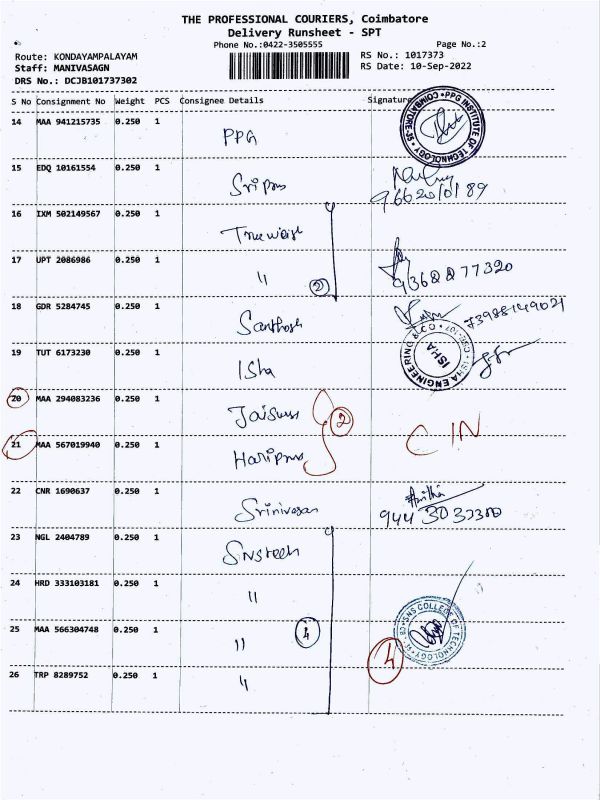 THE PROFESSIONAL COURIERS, Coimbatore
Delivery Runsheet - SPT
Phone No.:0422-3505555
Page No.:2
Route: KONDAYAMPALAYAM
RS No.: 1017373
Staff: MANIVASAGN
RS Date: 10-Sep-2022
DRS No.: DCJB101737302
S No Consignment No Weight PCS Consignee Details Signature
14 MAA 941215735 0.250 1 PPG
PPG INSTITUTE OF TECHNOLOGY * COIMBATORE-35 *
15 EDQ 10161554 0.250 1
16 IXM 502149567 0.250 1
17 UPT 2086986 0.250 1 " 2
18 GDR 5284745 0.250 1 Santhosh
19 TUT 6173230 0.250 1 Isha
ISHA ENGINEERING & CO * CBE-107 * ISHA
20 MAA 294083236 0.250 1 2
21 MAA 567019940 0.250 1 CIN
22 CNR 1690637 0.250 1 Srinivasan
23 NGL 2404789 0.250 1 Snstech
24 HRD 333103181 0.250 1 "
25 MAA 566304748 0.250 1 " 4 4
SNS COLLEGE OF TECHNOLOGY
26 TRP 8289752 0.250 1 "